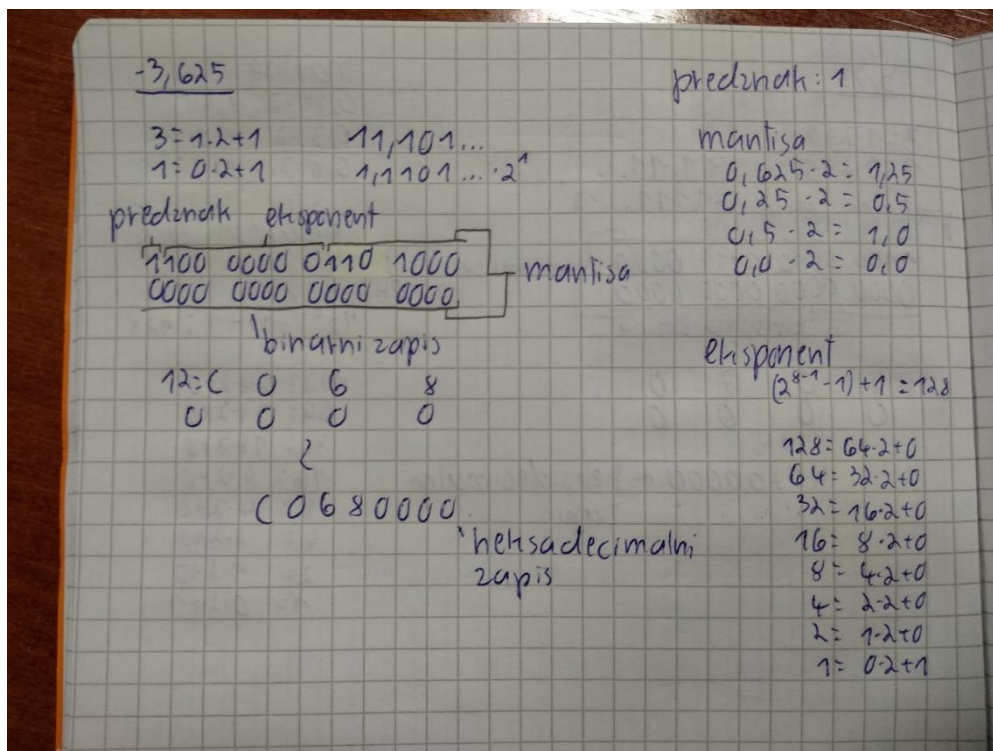 -3,625
3=1·2+1
1=0·2+1
11,101...
1,1101...·2¹
predznak eksponent
1100 0000 0110 1000
0000 0000 0000 0000
mantisa
binarni zapis
12=C 0 6 8
0 0 0 0
C0680000
heksadecimalni
zapis
predznak: 1
mantisa
0,625·2= 1,25
0,25·2= 0,5
0,5·2= 1,0
0,0·2= 0,0
eksponent
(2⁸⁻¹-1)+1=128
128=64·2+0
64=32·2+0
32=16·2+0
16=8·2+0
8=4·2+0
4=2·2+0
2=1·2+0
1=0·2+1